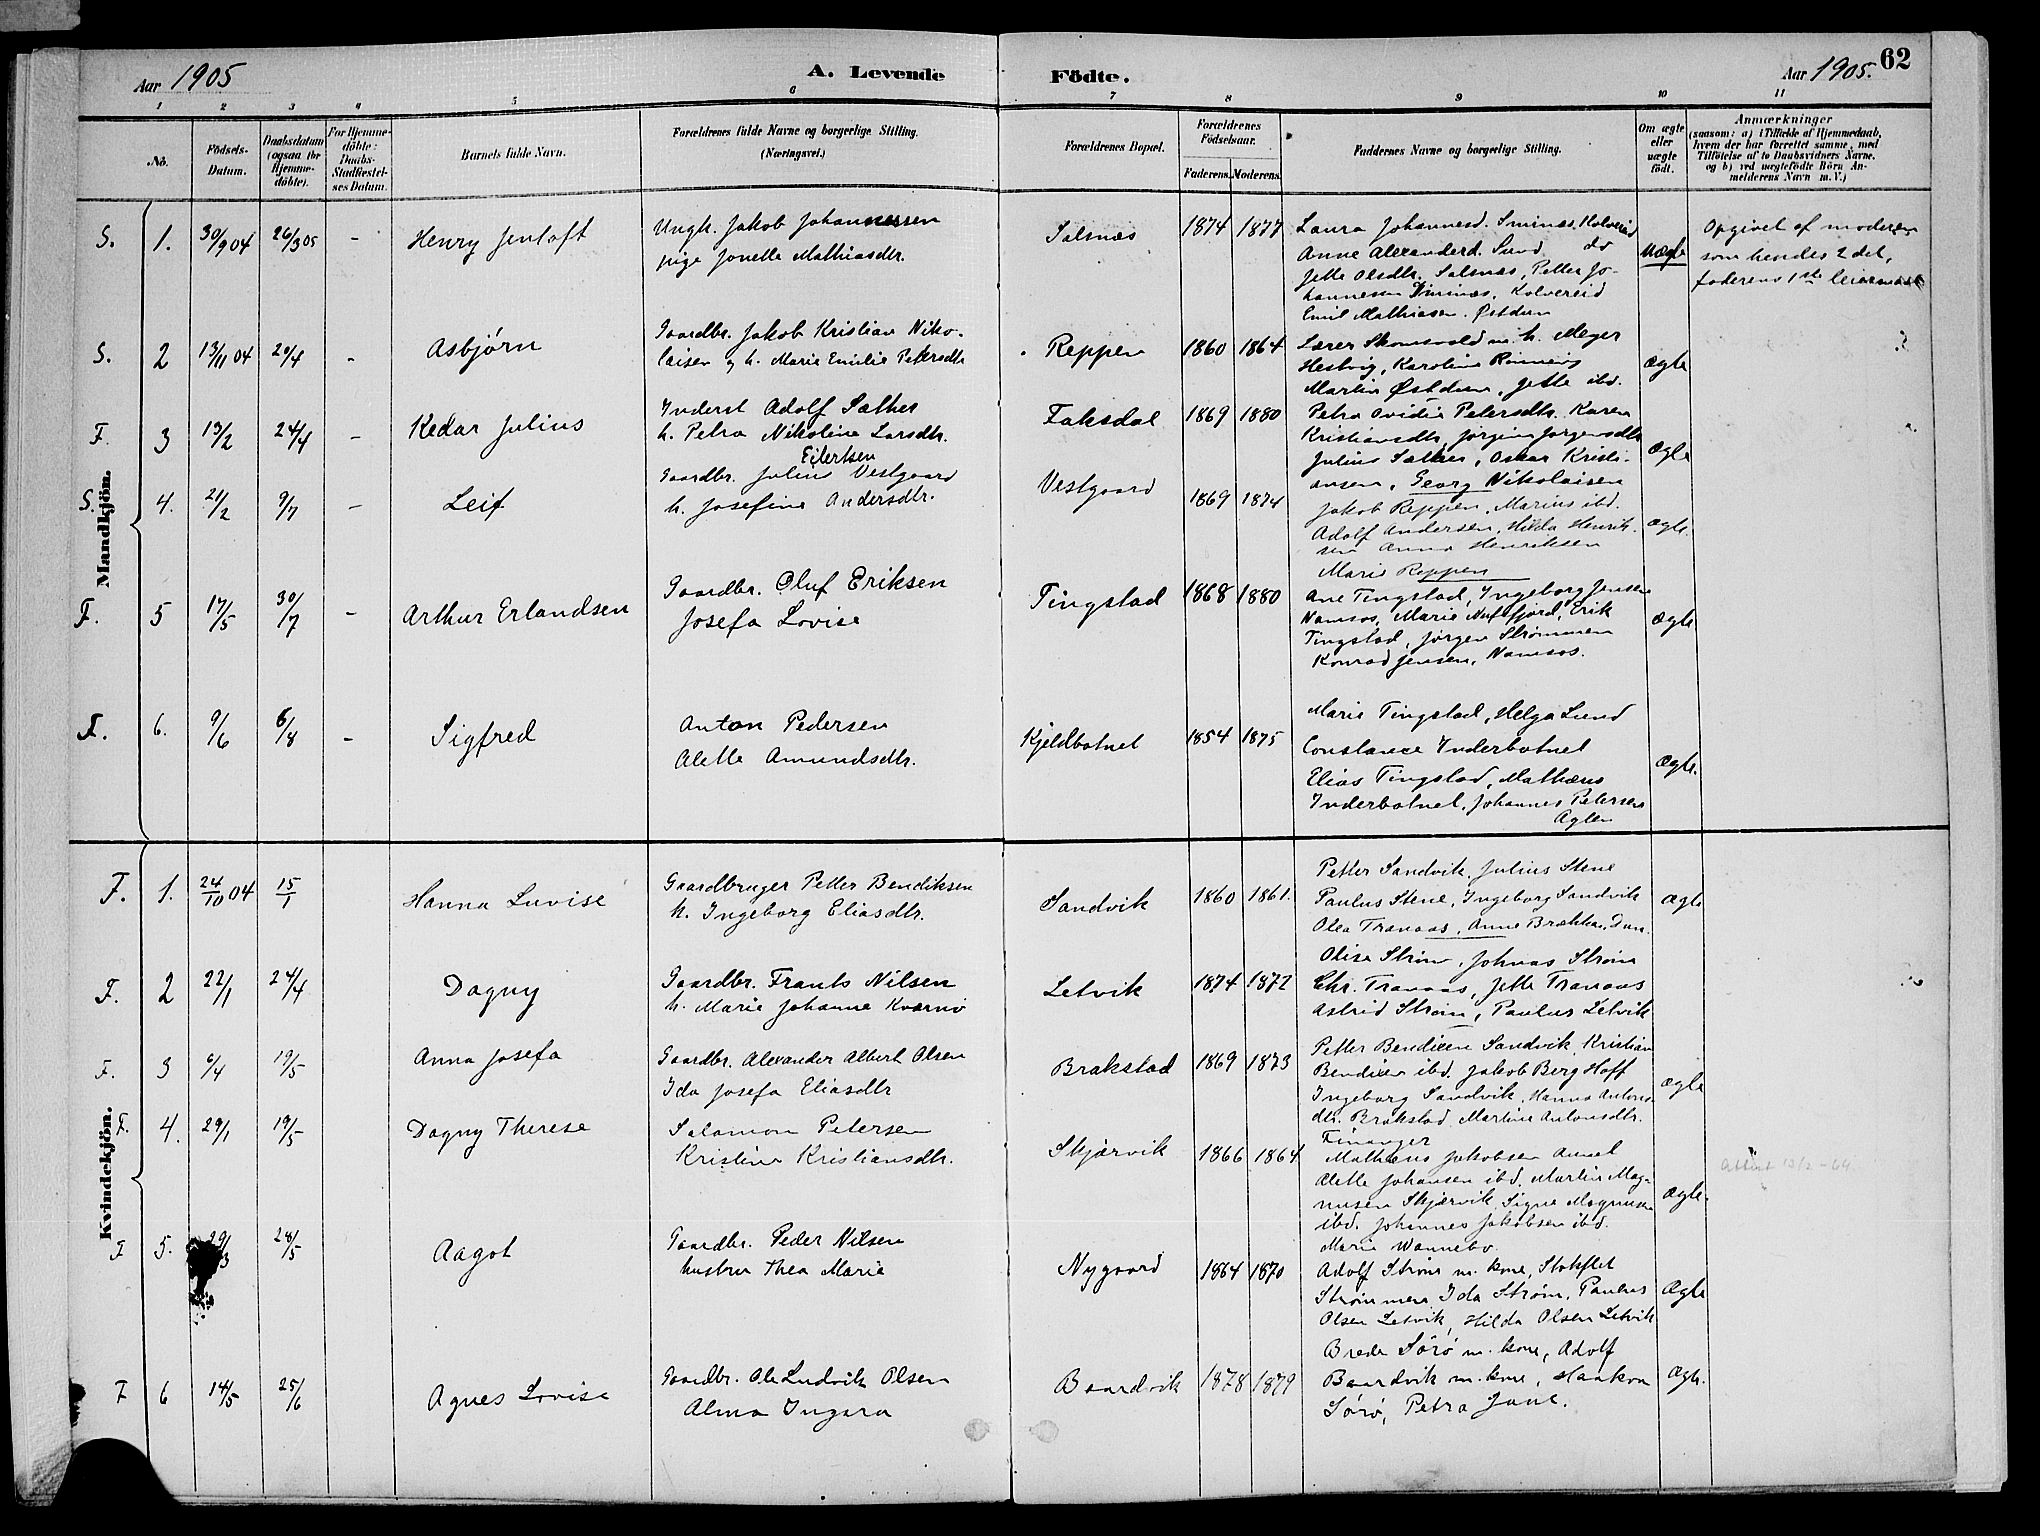 Aar 1905
A. Levende
Födte.
Aar 1905.
62
1 2 3 4 5 6 7 8 9 10 11
No.
Födsels-Datum.
Daabsdatum (ogsaa for Hjemme-döbte).
For Hjemme-döbte: Daabs-Stadfæstel-ses Datum.
Barnets fulde Navn.
Forældrenes fulde Navne og borgerlige Stilling. (Næringsvei.)
Forældrenes Bopæl.
Forældrenes Födselsaar.
Faderens. Moderens.
Faddernes Navne og borgerlige Stilling.
Om ægte eller uægte födt.
Anmærkninger
(saasom: a) i Tilfælde af Hjemmedaab,
hvem der har forrettet samme, med
Tilföielse af to Daabsvidners Navne,
og b) ved uægtefödte Börn An-
melderens Navn m. V.)
Mandkjön.
S. 1. 30/9 04 26/3 05 - Henry Jentoft
Ungk. Jakob Johannessen
pige Jonette Mathiasdtr.
Salsnæs 1874 1877
Laura Johannesd. Sminæs, Kolvereid
Anne Alexanderd. Sund do
Jette Olsdtr. Salsnæs, Petter Jo-
hannessen Sminæs, Kolvereid
Emil Mathiesen Østduun
Uægte
Opgivet af moderen
som hendes 2 det,
faderens 1ste leiermaal
S. 2 13/11 04 20/4 - Asbjørn
Gaardbr. Jakob Kristian Niko-
laisen og h. Marie Emilie Petersdtr
Reppen 1860 1864
Lærer Skomsvold m. h. Meyer
Hestvig, Karoline
Martin Østduun, Jette ibd.
Ægte
F. 3 13/2 24/4 - Kedar Julius
Inderst Adolf Sæther
h. Petra Nikoline Larsdtr.
Faksdal 1869 1880
Petra Ovidia Petersdtr. Karen
Kristiansdtr, Jørgine Jørgensdtr
Julius Sæther, Oskar Kristi-
ansen, Georg Nikolaisen
Ægte
S. 4. 21/2 9/7 - Leif
Eilertsen
Gaardbr. Julius Vestgaard
h. Josefine Andersdtr.
Vestgaard 1869 1874
Jakob Reppen, Marius ibd.
Adolf Andersen, Hilda Henrik-
sen Anna Henriksen
Marie Reppen
Ægte.
F. 5 17/5 30/7 - Arthur Erlandsen
Gaardbr. Oluf Eriksen
Josefa Lovise
Tingstad 1868 1880
Ane Tingstad, Ingeborg Jensen
Namsos, Marie Aufsfjord, Erik
Tingstad, Jørgen Strømmen
Konrad Jensen, Namsos.
Ægte
F. 6. 9/6 6/8 - Sigfred
Anton Pedersen
Alette Amundsdtr.
Kjeldbotnet 1854 1875
Marie Tingstad, Helga Lund
Constance Inderbotnet
Elias Tingstad, Mathæus
Inderbotnet, Johannes Petersen
Aglen
Ægte.
Kvindekjön.
F. 1. 24/10 04 15/1 Hanna Luvise
Gaardbruger Petter Bendiksen
h. Ingeborg Eliasdtr.
Sandvik 1860 1861.
Petter Sandvik, Julius Stene
Paulus Stene, Ingeborg Sandvik
Olea Tranaas, Anne Brækkan, Dun.
Ægte
F. 2 22/1 24/4 Dagny
Gaardbr. Frants Nilsen
h. Marie Johanne Kvernø
Letvik 1874 1872
Olise Strøm, Johnas Strøm
Chr. Tranaas, Jette Tranaas
Astrid Strøm, Paulus Letvik
F. 3 6/4 19/5 Anna Josefa
Gaardbr. Alexander Albert Olsen
Ida Josefa Eliasdtr
Brakstad 1869 1873
Petter Bendixen Sandvik, Kristian
Bendixen ibd. Jakob Berg Hoff
Ingeborg Sandvik, Hanna Antons-
dtr. Brakstad, Martine Antonsdtr.
Finanger
Ægte
F. 4. 29/1 19/5 Dagny Therese
Salamon Petersen
Kristine Kristiansdtr.
Skjærvik 1866 1864
Mathæus Jakobsen
Alette Johansen ibd. Martin Mag-
nusen Skjærvik, Signe Magnusen
ibd. Johannes Jakobsen ibd.
Marie Wannebo.
Ægte.
Attest 13/2 - 64
F 5. 29/3 28/5 Aagot
Gaardbr. Peder Nilsen
hustru Thea Marie
Nygaard 1864 1870
Adolf Strøm m. kone, Stokflet
Strømmen Ida Strøm, Paulus
Olsen Letvik, Hilda Olsen Letvik
Ægte
F 6 14/5 25/6 Agnes Lovise
Gaardbr. Ole Ludvik Olsen
Alma Ingara
Baardvik 1878 1879
Brede Sørø m. kone, Adolf
Baardvik m. kone, Haakon
Sørø, Petra Jane.
Ægte.